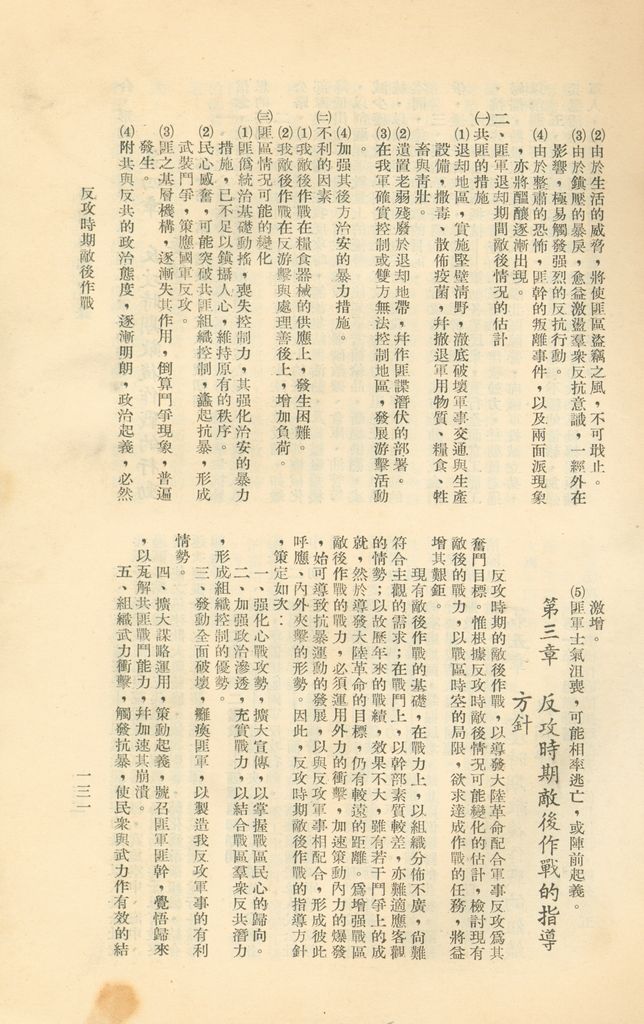 ⑵由於生活的威脅，將使匪區盜竊之風，不可戢止。
⑶由於鎮壓的暴戾，愈益激盪羣衆反抗意識，一經外在
影響，極易觸發强烈的反抗行動。
⑷由於整肅的恐怖，匪幹的叛離事件，以及兩面派現象
，亦將醞釀逐漸出現。
二、匪軍退却期間敵後情況的估計
㈠共匪的措施
⑴退却地區，實施堅壁淸野，澈底破壞軍事交通與生產
設備，撒毒、散佈疫菌，幷撤退軍用物質、糧食、牲
畜與靑壯。
⑵遺置老弱殘廢於退却地帶，幷作匪諜潛伏的部署。
⑶在我軍確實控制或雙方無法控制地區，發展游擊活動
。
⑷加强其後方治安的暴力措施。
㈡不利的因素
⑴我敵後作戰在糧食器械的供應上，發生困難。
⑵我敵後作戰在反游擊與處理善後上，增加負荷。
㈢匪區情況可能的變化
⑴匪僞統治基礎動搖，喪失控制力，其强化治安的暴力
措施，已不足以鎮攝人心，維持原有的秩序。
⑵民心感奮，可能突破共匪組織控制，蠭起抗暴，形成
武裝鬥爭，策應國軍反攻。
⑶匪之基層機構，逐漸失其作用，倒算鬥爭現象，普遍
發生。
⑷附共與反共的政治態度，逐漸明朗，政治起義，必然
反攻時期敵後作戰
激增。
⑸匪軍士氣沮喪，可能相率逃亡，或陣前起義。
第三章　反攻時期敵後作戰的指導
方針
反攻時期的敵後作戰，以導發大陸革命配合軍事反攻爲其
奮鬥目標。惟根據反攻時敵後情況可能變化的估計，檢討現有
敵後的戰力，以戰區時空的局限，欲求達成作戰的任務，將益
增其艱鉅。
現有敵後作戰的基礎，在戰力上，以組織分佈不廣，尙難
符合主觀的需求；在戰鬥上，以幹部素質較差，亦難適應客觀
的情勢；以故歷年來的戰績，效果不大，雖有若干鬥爭上的成
就，然於導發大陸革命的目標，仍有較遠的距離。爲增强戰區
敵後作戰的戰力，必須運用外力的衝擊，加速策動內力的爆發
，始可導致抗暴運動的發展，以與反攻軍事相配合，形成彼此
呼應、內外夾擊的形勢。因此，反攻時期敵後作戰的指導方針
，策定如次：
一、强化心戰攻勢，擴大宣傳，以掌握戰區民心的歸向。
二、加强政治滲透，充實戰力，以結合戰區羣衆反共潛力
，形成組織控制的優勢。
三、發動全面破壞，癱瘓匪軍，以製造我反攻軍事的有利
情勢。
四、擴大謀略運用，策動起義，號召匪軍匪幹，覺悟歸來
，以瓦解共匪戰鬥能力，幷加速其崩潰。
五、組織武力衝擊，觸發抗暴，使民衆與武力作有效的結
一三一